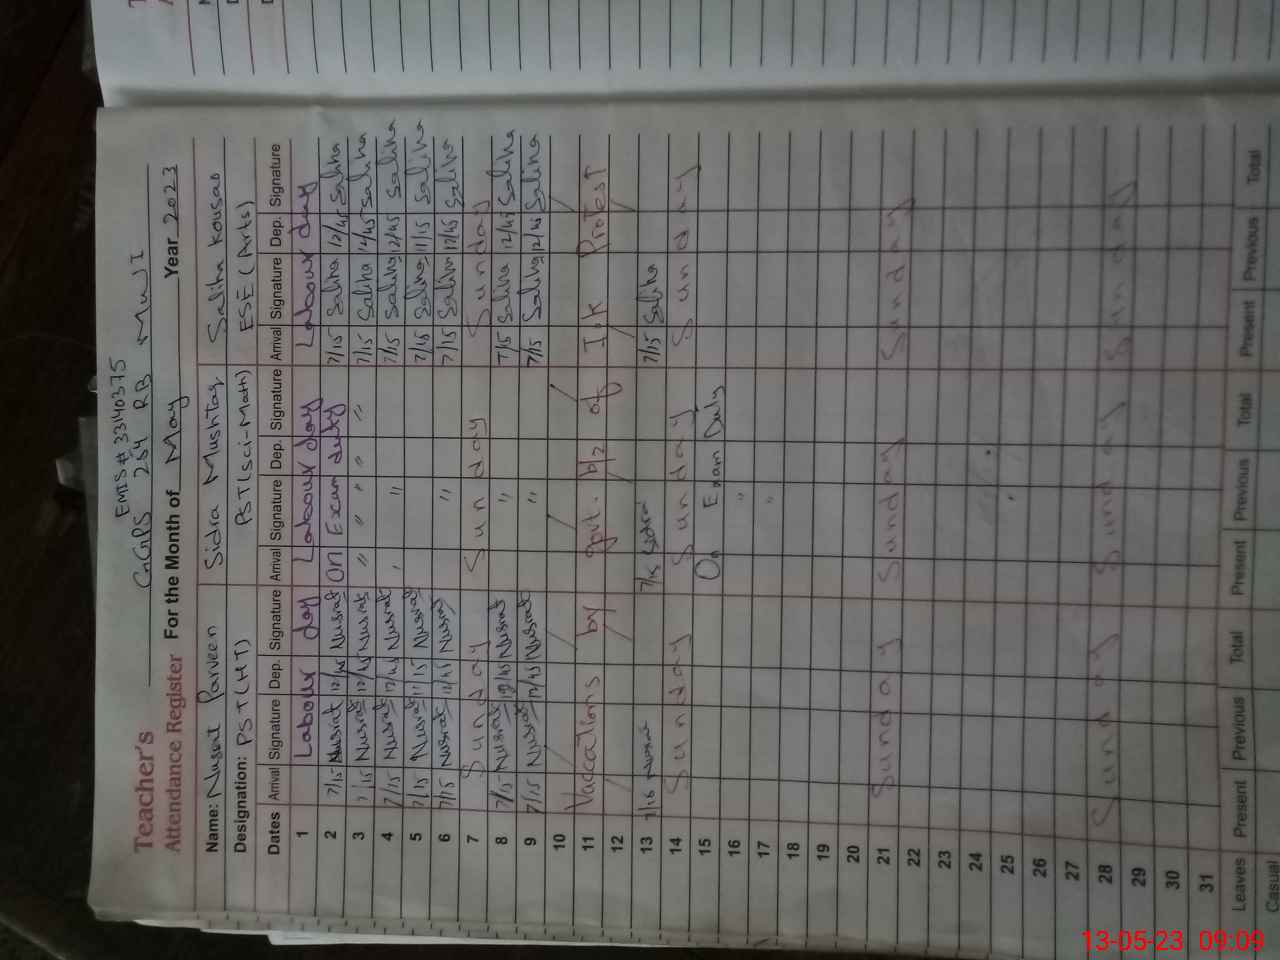 EMIS# 33140375
Teacher's GGPS 254 RB MWI
Attendance Register For the Month of May Year 2023
Name: Nusrat Parveen Sidra Mushtaq Saliha Kousar
Designation: PST(HT) PST(Sci-Math) ESE(Arts)
Dates Arrival Signature Dep. Signature Arrival Signature Dep. Signature Arrival Signature Dep. Signature
1 Labour day Labour day Labour day
2 7/15 Nusrat 12/45 Nusrat On Exam duty 7/15 Saliha 12/45 Saliha
3 7/15 Nusrat 12/45 Nusrat " " " " 7/15 Saliha 12/45 Saliha
4 7/15 Nusrat 12/45 Nusrat " 7/15 Saliha 12/45 Saliha
5 7/15 Nusrat 11/15 Nusrat 7/15 Saliha 11/15 Saliha
6 7/15 Nusrat 12/45 Nusrat " 7/15 Saliha 12/45 Saliha
7 Sunday Sunday Sunday
8 7/15 Nusrat 12/45 Nusrat " 7/15 Saliha 12/45 Saliha
9 7/15 Nusrat 12/45 Nusrat " 7/15 Saliha 12/45 Saliha
10
11 Vaccations by govt. b/z of I.K Protest
12
13 7/15 Nusrat 7/15 Sidra 7/15 Saliha
14 Sunday Sunday Sunday
15 On Exam Duty
16 "
17 "
18
19
20
21 Sunday Sunday Sunday
22
23
24
25
26
27
28 Sunday Sunday Sunday
29
30
31
Leaves Present Previous Total Present Previous Total Present Previous Total
Casual
13-05-23 09:09